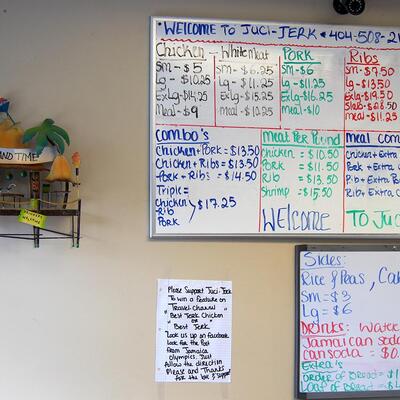 WELCOME TO JUCI-JERK • 404-508-2
Chicken
Sm - $5
Lg - $10.25
ExLg-$14.25
Meal-$9
White Meat
Sm - $6.25
Lg - $11.25
ExLg-$15.25
Meal-$10.25
PORK
Sm-$6
Lg-$11.25
ExLg-$16.25
Meal-$10
Ribs
Sm-$7.50
Lg-$13.50
ExLg-$19.50
Slab-$28.50
Meal-$11.25
COMBO'S
Chicken+Pork=$13.50
Chicken+Ribs=$13.50
Pork+Ribs=$14.50
Triple=
Chicken
Rib
Pork
$17.25
Meat Per Pound
Chicken = $10.50
Pork = $11.50
Rib = $13.50
Shrimp = $15.50
WELCOME
Meal Com
Chicken+Extra
Pork+Extra
Rib+Extra
Rib+Extra
TO JUCI
AND TIME
Sides:
Rice & Peas, Ca
Sm=$3
Lg=$6
Drinks: Wat
Jamaican soda
can soda=$0.
Extra's
order of Bread=$1
Loaf of Bread=$4
Please Support Juci-Jerk
To win a feature on
"Travel Channel"
Best Jerk Chicken
OR
Best Jerk
Look us up on facebook
Look for the Post
from Jamaica
Olympics. Just
follow the direction
Please and Thanks
for the love & support